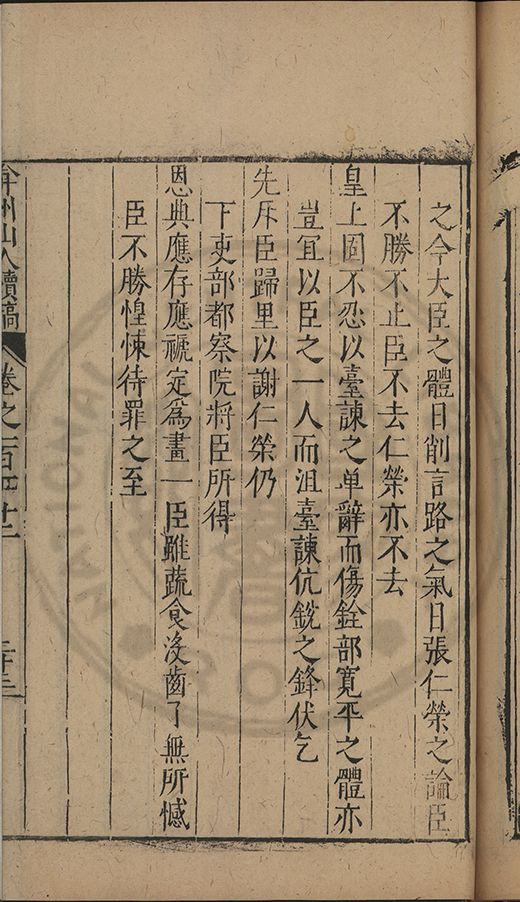 之今大臣之體日削言路之氣日張仁榮之論臣
不勝不止臣不去仁榮亦不去
皇上固不忍以臺諫之单辭而傷銓部寬平之體亦
豈宜以臣之一人而沮臺諫伉銳之鋒伏乞
先斥臣歸里以謝仁榮仍
下吏部都察院將臣所得
恩典應存應褫定爲畫一臣雖蔬食沒齒了無所憾
臣不勝惶悚待罪之至
弇州山人續稿 卷之一百四十二